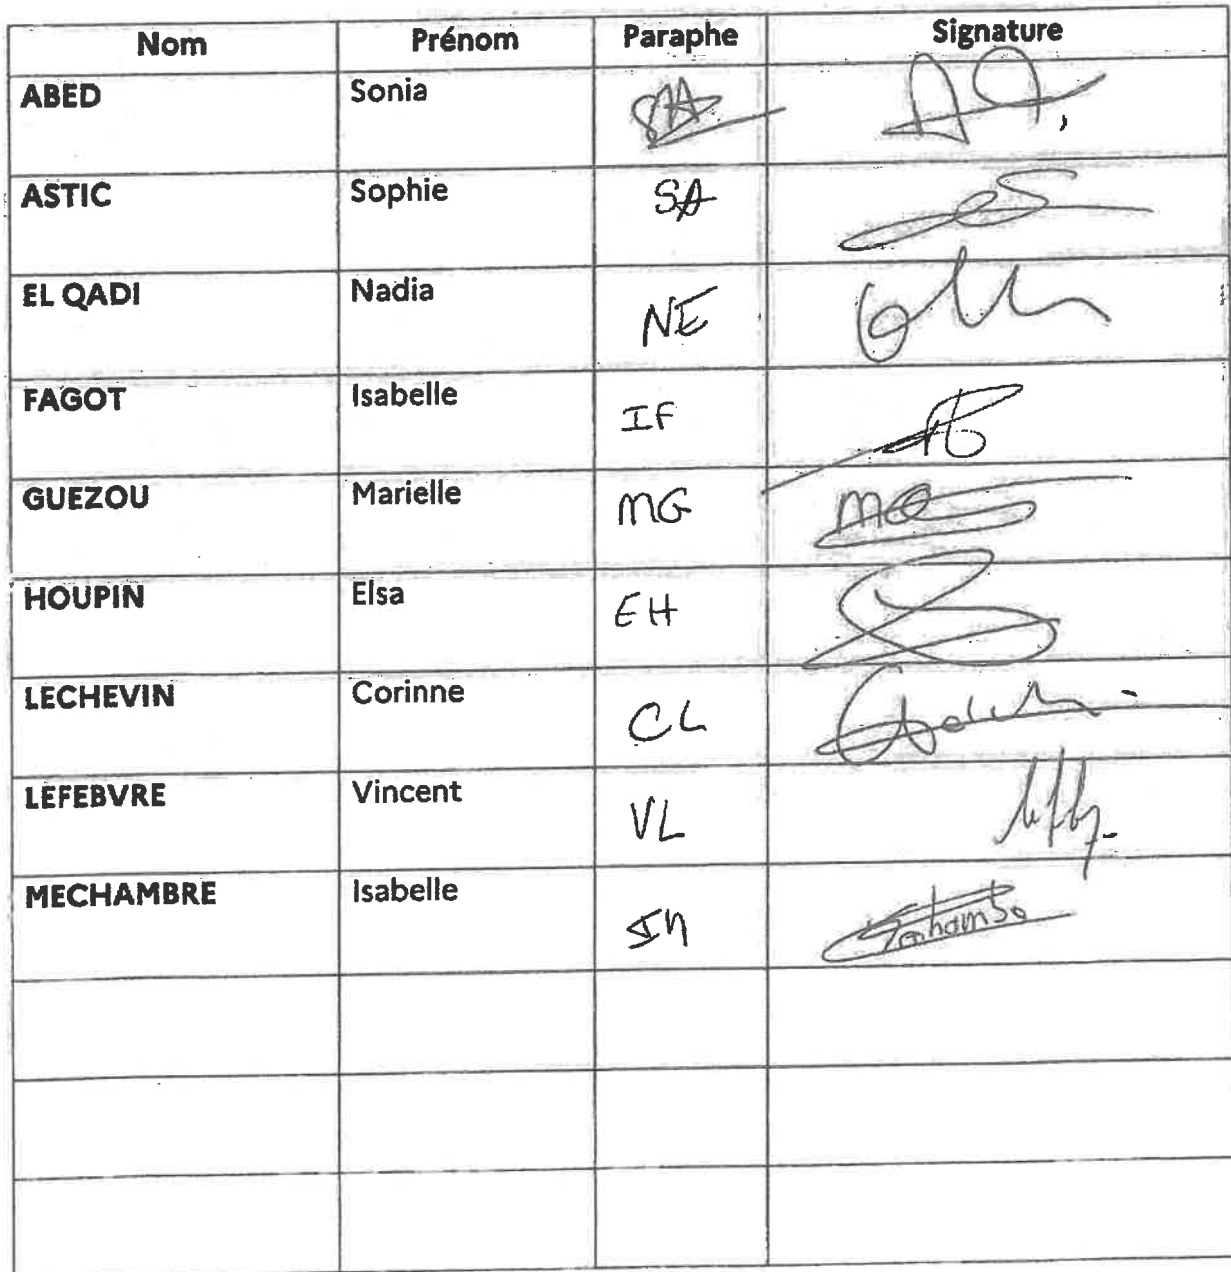 Nom Prénom Paraphe Signature
ABED Sonia SA
ASTIC Sophie SA
EL QADI Nadia NE
FAGOT Isabelle IF
GUEZOU Marielle MG
HOUPIN Elsa EH
LECHEVIN Corinne CL
LEFEBVRE Vincent VL
MECHAMBRE Isabelle IM